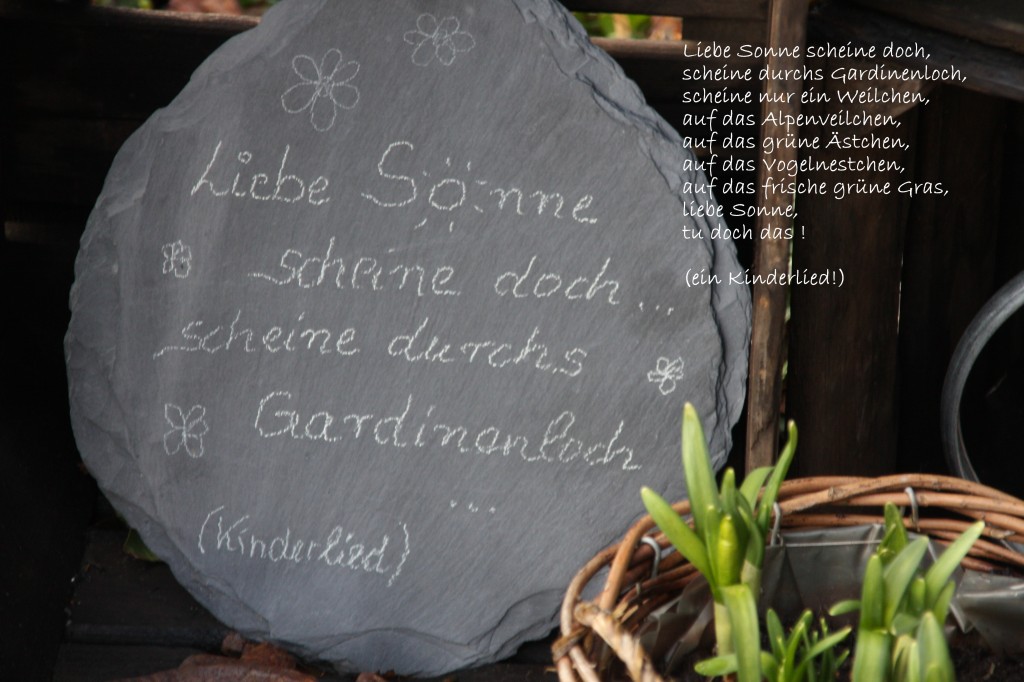 Liebe Sonne
scheine doch...
scheine durchs
Gardinenloch
...
(Kinderlied)
Liebe Sonne scheine doch,
scheine durchs Gardinenloch,
scheine nur ein Weilchen,
auf das Alpenveilchen,
auf das grüne Ästchen,
auf das Vogelnestchen,
auf das frische grüne Gras,
liebe Sonne,
tu doch das !
(ein Kinderlied!)